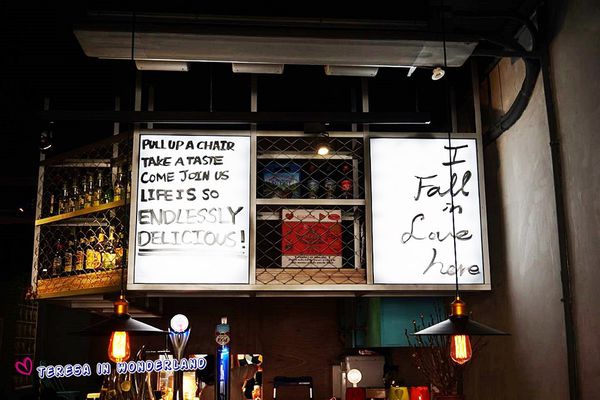 PULL UP A CHAIR
TAKE A TASTE
COME JOIN US
LIFE IS SO
ENDLESSLY
DELICIOUS!
I
Fall
in
Love
here
TERESA IN WONDERLAND